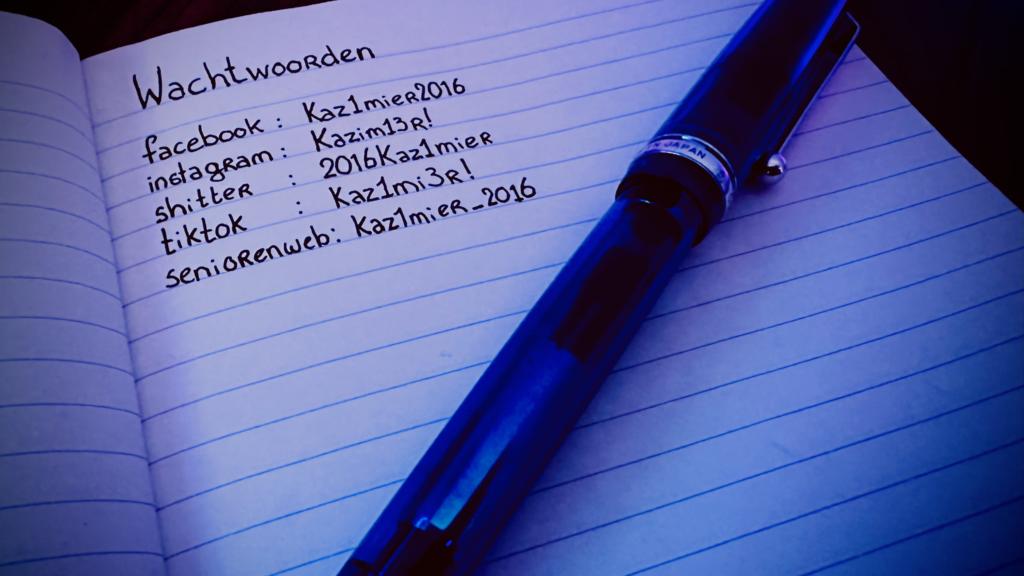 Wachtwoorden
facebook : Kaz1mier2016
instagram : Kazim13r!
shitter : 2016Kaz1mier
tiktok : Kaz1mi3r!
seniorenweb: Kaz1mier_2016
JAPAN